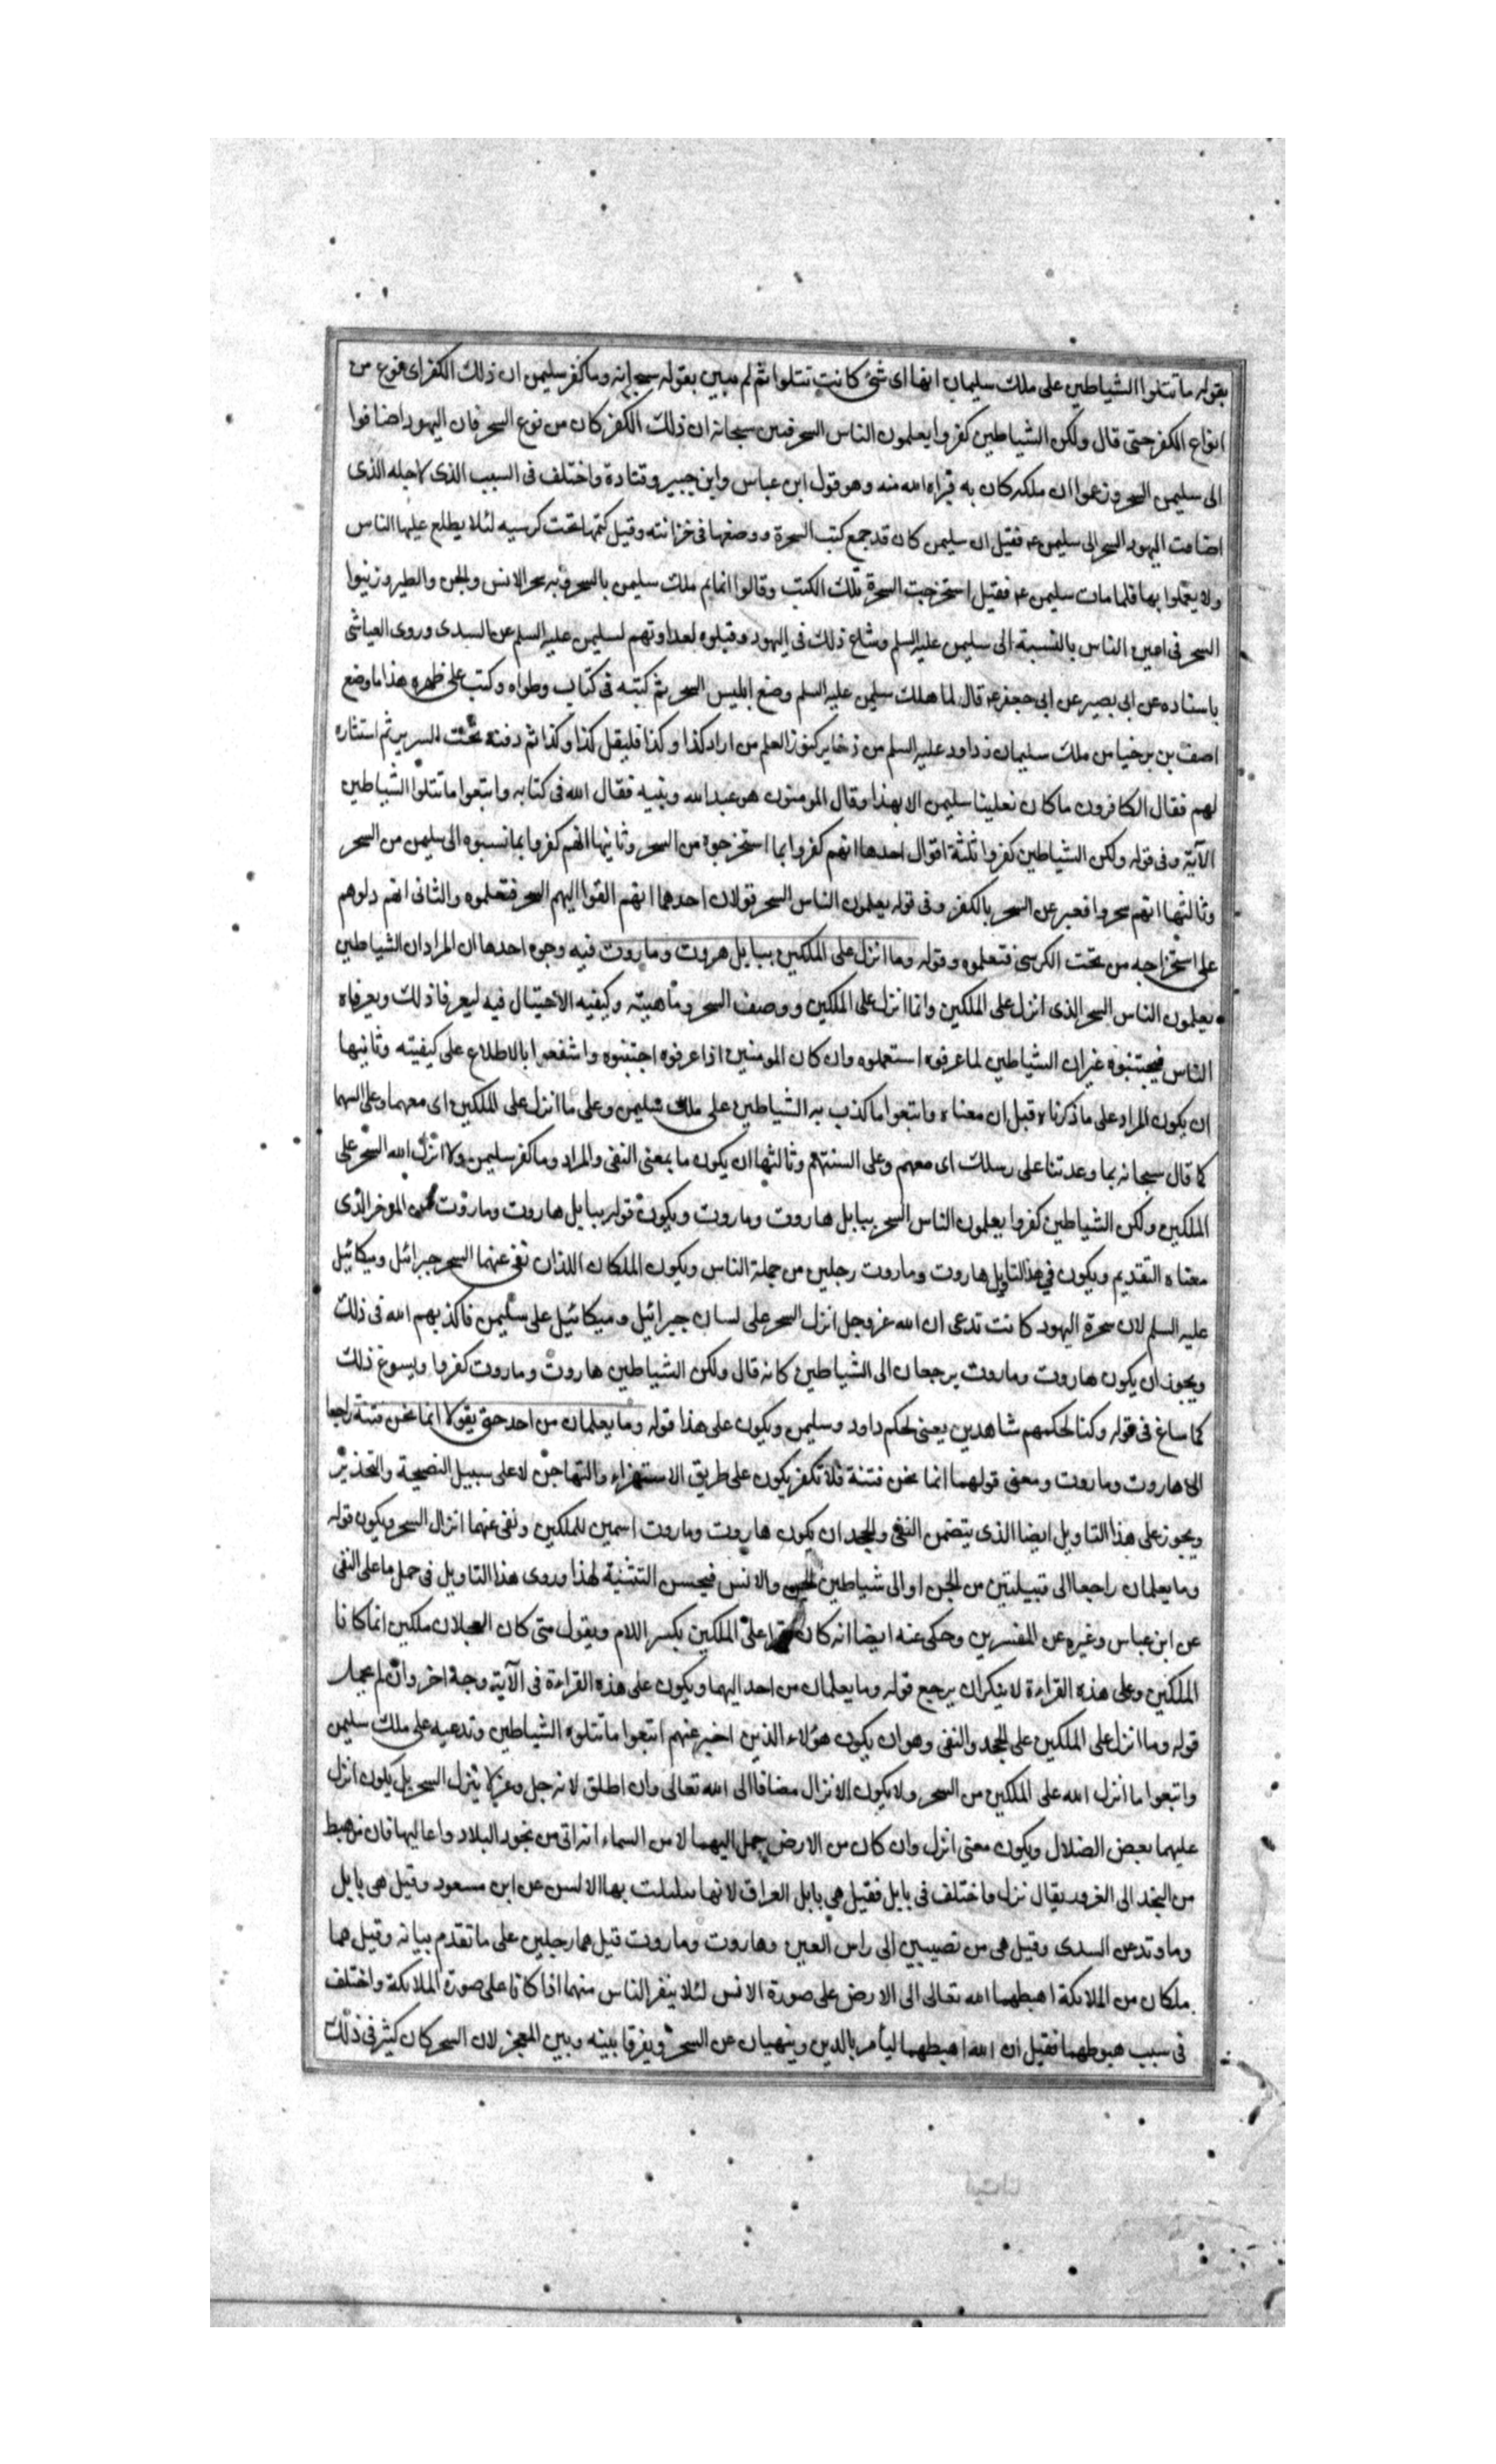 بقوله ما تتلوا الشياطين على ملك سليمان انها اى شئ كانت تتلوا ثم لم يبين بقوله سبحانه وما كفر سليمن ان ذلك الكفر اى نوع من
انواع الكفر حتى قال ولكن الشياطين كفروا يعلمون الناس السحر فبين سبحانه ان ذلك الكفر كان من نوع السحر فان اليهود اضافوا
الى سليمن السحر وزعموا ان ملكه كان به فبراه الله منه وهو قول ابن عباس وابن جبير وقتادة واختلف فى السبب الذى لاجله الذى
اضافت اليهود السحر الى سليمن ع فقيل ان سليمن كان قد جمع كتب السحرة ووضعها فى خزانته وقيل كتمها تحت كرسيه لئلا يطلع عليها الناس
ولا يعملوا بها فلما مات سليمن ع فقيل استخرجت السحرة تلك الكتب وقالوا انما تم ملك سليمن بالسحر وبه سخر الانس والجن والطير وزينوا
السحر فى اعين الناس بالنسبة الى سليمن عليه السلم وشاع ذلك فى اليهود وقبلوه لعداوتهم لسليمن عليه السلم عن السدى وروى العياشى
باسناده عن ابى بصير عن ابى جعفر ع قال لما هلك سليمن عليه السلم وضع ابليس السحر ثم كتبه فى كتاب وطواه وكتب على ظهره هذا ما وضع
اصف بن برخيا من ملك سليمان ن داود عليه السلم من ذخاير كنوز العلم من اراد كذا وكذا فليقل كذا وكذا ثم دفنه تحت السرير ثم استثاره
لهم فقال الكافرون ما كان تعلينا سليمن الا بهذا وقال المومنون هو عبد الله ونبيه فقال الله فى كتابه واتبعوا ما تتلوا الشياطين
الآية وفى قوله ولكن الشياطين كفروا ثلثة اقوال احدها انهم كفروا بما استخرجوه من السحر وثانيها انهم كفروا بما نسبوه الى سليمن من السحر
وثالثها انهم سحروا فعبر عن السحر بالكفر وفى قوله يعلمون الناس السحر قولان احدهما انهم القوا اليهم السحر فتعلموه والثانى انهم دلوهم
على استخراجه من تحت الكرسى فتعلموه وقوله وما انزل على الملكين ببابل هروت وماروت فيه وجوه احدها ان المراد ان الشياطين
يعلمون الناس السحر الذى انزل على الملكين وانما انزل على الملكين ووصف السحر وماهيته وكيفيه الاحتيال فيه ليعرفا ذلك ويعرفاه
الناس فيجتنبوه غير ان الشياطين لما عرفوه استعملوه وان كان المومنين اذا عرفوه اجتنبوه وانتفعوا بالاطلاع على كيفيته وثانيها
ان يكون المراد على ما ذكرناه قبل ان معناه واتبعوا ما كذب به الشياطين على ملك سليمن وعلى ما انزل على الملكين اى معهما وعلى السهما
كا قال سبحانه بما وعدتنا على رسلك اى معهم وعلى السنتهم وثالثها ان يكون ما بمعنى النفى والمراد وما كفر سليمن ولا انزل الله السحر على
الملكين ولكن الشياطين كفروا يعلمون الناس السحر ببابل هاروت وماروت ويكون قوله ببابل هاروت وماروت من الموخر الذى
معناه التقديم ويكون فى هذا التاويل هاروت وماروت رجلين من جملة الناس ويكون الملكان اللذان نفى عنهما السحر جبرائل وميكائيل
عليه السلم لان سحرة اليهود كانت تدعى ان الله عز وجل انزل السحر على لسان جبرائيل وميكائيل على سليمن فاكذبهم الله فى ذلك
ويجوز ان يكون هاروت وماروت يرجعان الى الشياطين كانه قال ولكن الشياطين هاروت وماروت كفروا ويسوغ ذلك
كما ساغ فى قوله وكنا لحكمهم شاهدين يعنى لحكم داود وسليمن ويكون على هذا قوله وما يعلمان من احد حتى يقولا انما نحن فتنة راجعا
الى هاروت وماروت ومعنى قولهما انما نحن فتنة فلا تكفر يكون على طريق الاستهزاء والتهاجن لا على سبيل النصيحة والتحذير
ويجوز على هذا التاويل ايضا الذى يتضمن النفى والجحد ان يكون هاروت وماروت اسمين للملكين ونفى عنهما انزال السحر ويكون قوله
وما يعلمان راجعا الى قبيلتين من الجن او الى شياطين الجن والانس فيحسن التثنية لهذا وروى هذا التاويل فى حمل ما على النفى
عن ابن عباس وغيره عن المفسرين وحكى عنه ايضا انه كان يقرا على الملكين بكسر اللام ويقول متى كان العجلان ملكين انما كانا
الملكين وعلى هذه القراءة لا ينكر ان يرجع قوله وما يعلمان من احد اليهما ويكون على هذه القراءة فى الآية وجه اخر وان لم يحمل
قوله وما انزل على الملكين على الجحد والنفى وهو ان يكون هؤلاء الذين اخبر عنهم اتبعوا ما تتلوه الشياطين وتدعيه على ملك سليمن
واتبعوا ما انزل الله على الملكين من السحر ولا يكون الانزال مضافا الى الله تعالى وان اطلق لانه جل وعز لا ينزل السحر بل يكون انزل
عليهما بعض الضلال ويكون معنى انزل وان كان من الارض حمل اليهما لا من السماء انه اتى من نجود البلاد واعاليها فان من هبط
من النجد الى الغور يقال نزل واختلف فى بابل فقيل هى بابل العراق لانها تبلبلت بها الالسن عن ابن مسعود وقيل هى بابل
وماوند عن السدى وقيل هى من نصيبين الى راس العين وهاروت وماروت قيل هما رجلين على ما تقدم بيانه وقيل هما
ملكان من الملائكة اهبطهما الله تعالى الى الارض على صورة الانس لئلا ينفر الناس منهما اذا كانا على صورة الملائكة واختلف
فى سبب هبوطهما فقيل ان الله اهبطهما ليامر بالدين وينهيان عن السحر ويفرقا بينه وبين المعجز لان السحر كان كثر فى ذلك